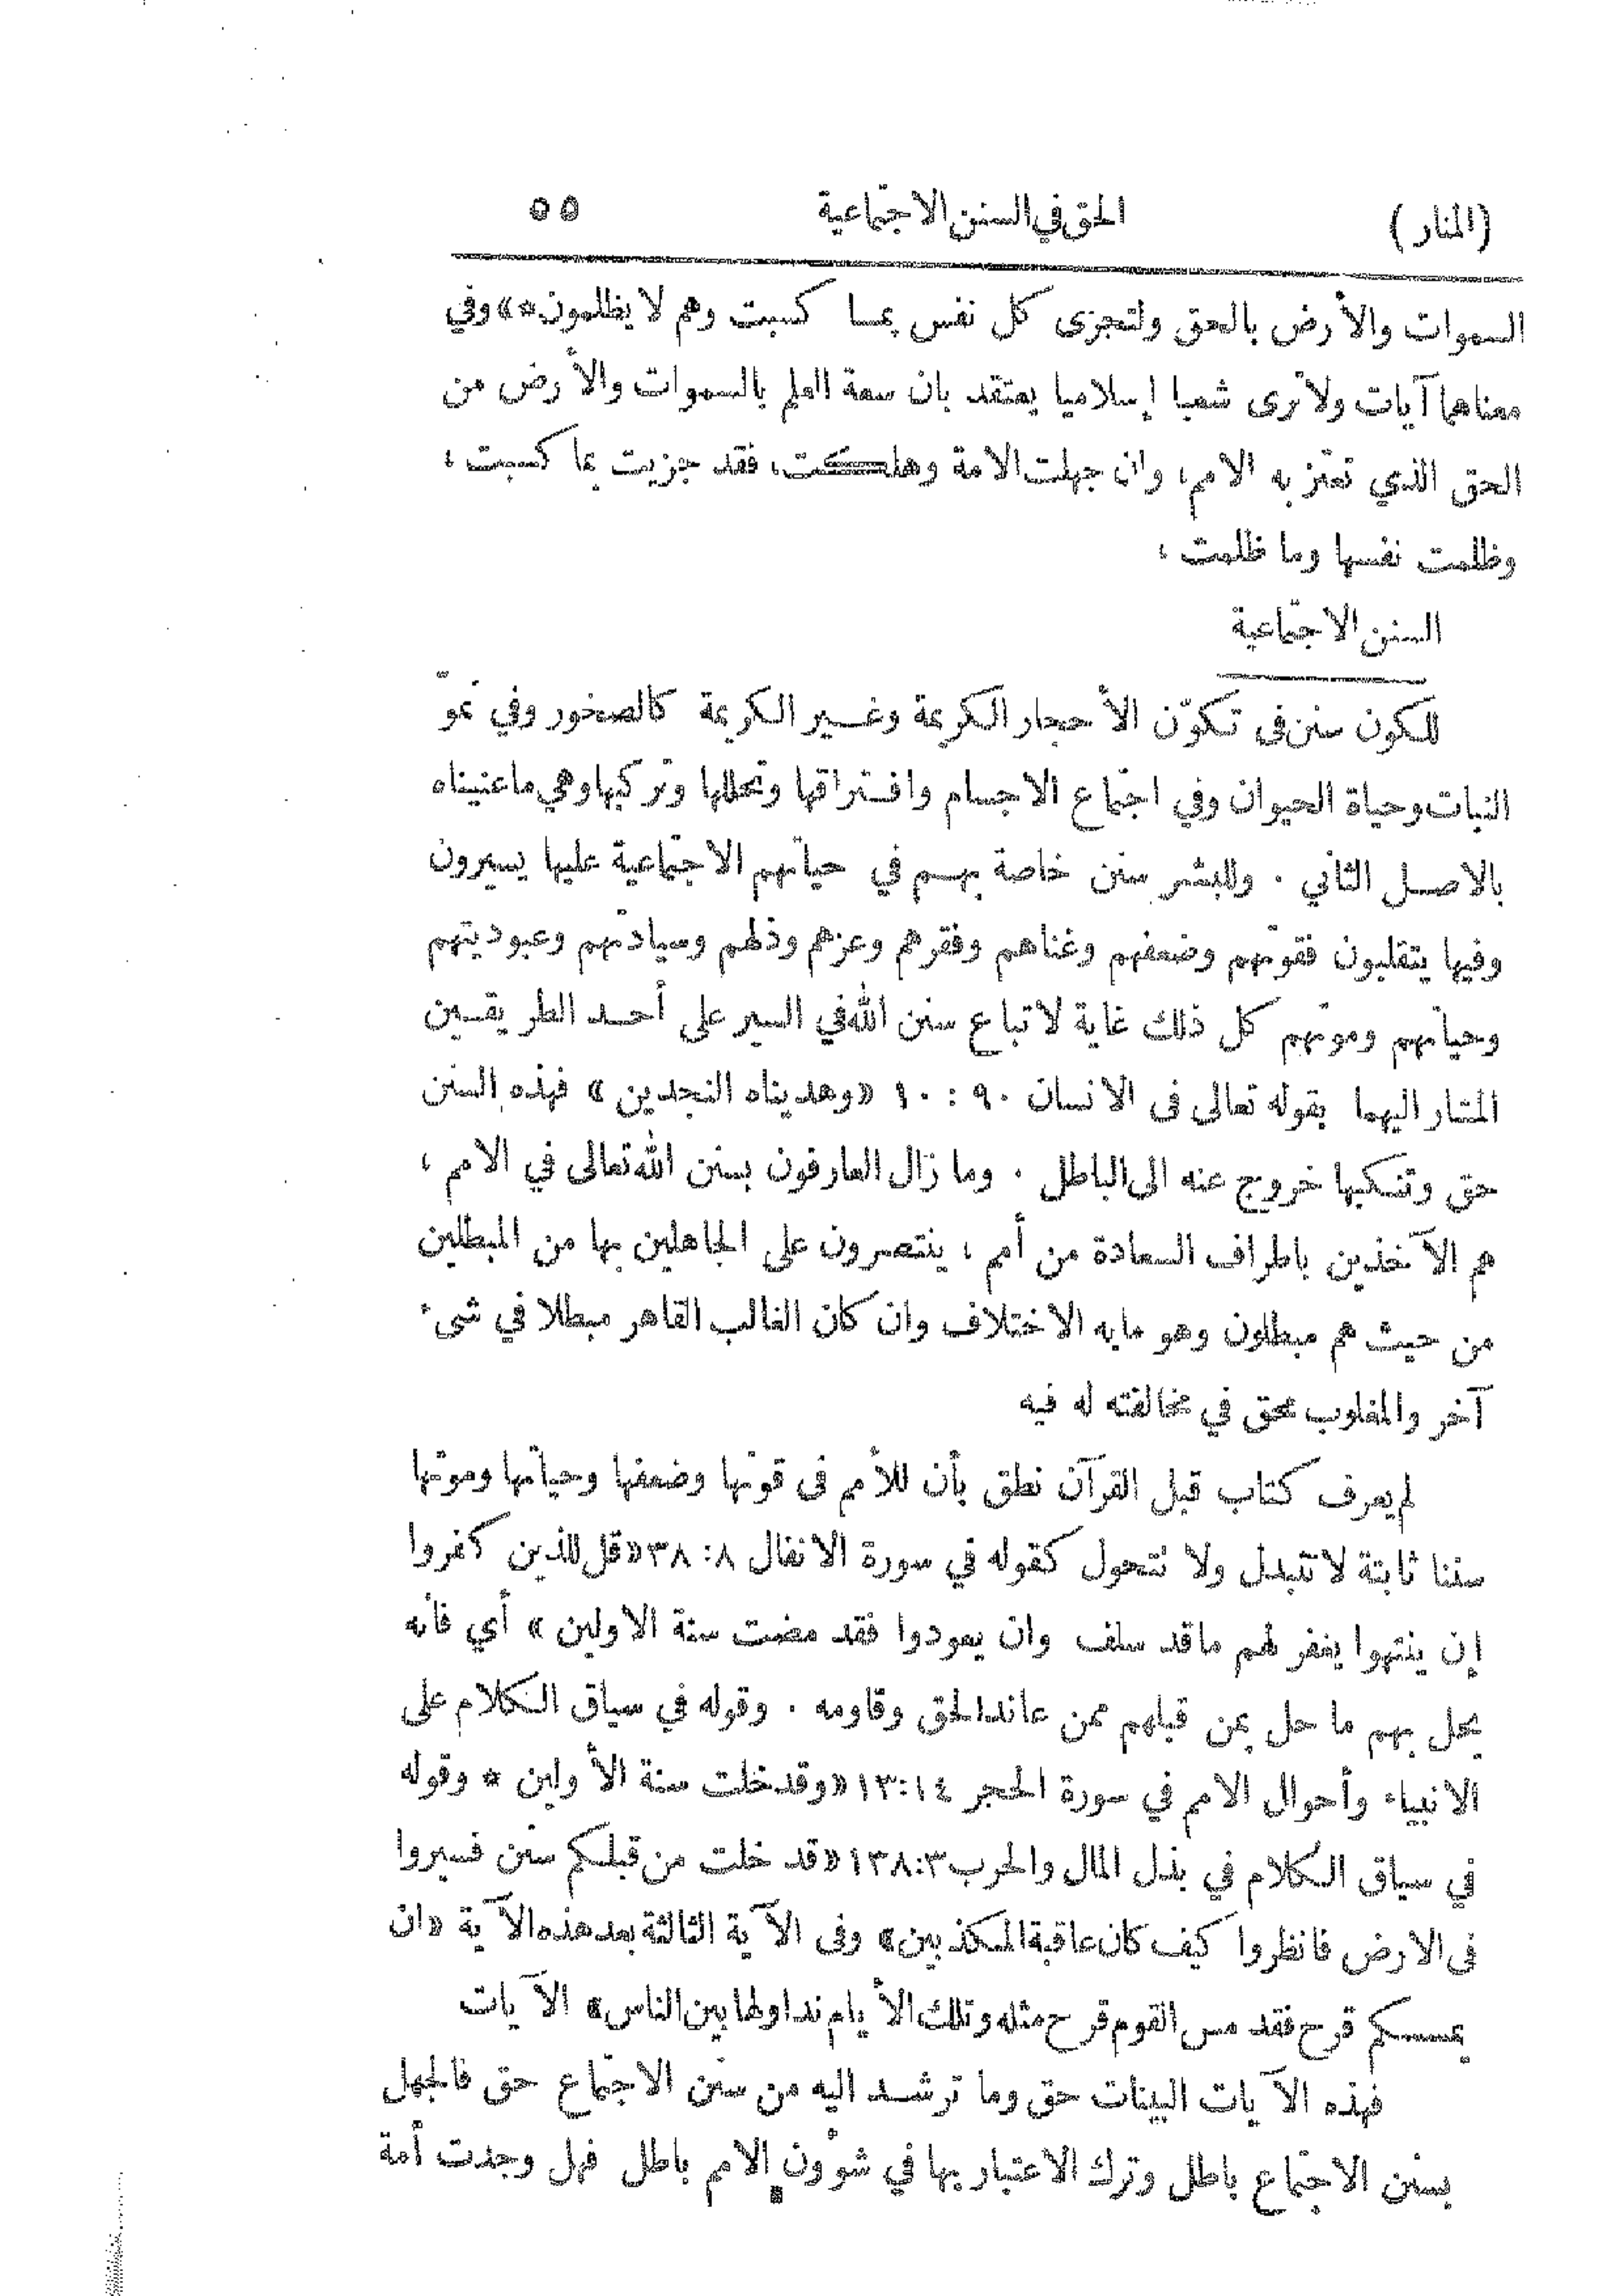 (المنار) الحق في السنن الاجتماعية ٥٥
السموات والأرض بالحق ولتجزى كل نفس بما كسبت وهم لا يظلمون*» وفي
معناهما آيات ولا ترى شعبا إسلاميا يعتقد بان سعة العلم بالسموات والأرض من
الحق الذي تعتز به الامم، وان جهلت الامة وهلكت، فقد جزيت بما كسبت ،
وظلمت نفسها وما ظلمت ،
السنن الاجتماعية
للكون سنن فى تكوّن الأحجار الكريمة وغير الكريمة كالصخور وفي نموّ
النبات وحياة الحيوان وفي اجتماع الاجسام وافتراقها وتحللها وتركبها وهي ما عنيناه
بالاصل الثاني . وللبشر سنن خاصة بهم في حياتهم الاجتماعية عليها يسيرون
وفيها يتقلبون فقوتهم وضعفهم وغناهم وفقرهم وعزهم وذلهم وسيادتهم وعبوديتهم
وحياتهم وموتهم كل ذلك غاية لاتباع سنن الله في السير على أحد الطريقين
المشار اليهما بقوله تعالى فى الانسان ٩٠ : ١٠ «وهديناه النجدين» فهذه السنن
حق وتنكبها خروج عنه الى الباطل . وما زال العارفون بسنن الله تعالى في الامم ،
هم الآخذين باطراف السعادة من أمم ، ينتصرون على الجاهلين بها من المبطلين
من حيث هم مبطلون وهو ما به الاختلاف وان كان الغالب القاهر مبطلا في شىء
آخر والمغلوب محق في مخالفته له فيه
لم يعرف كتاب قبل القرآن نطق بأن للأمم فى قوتها وضعفها وحياتها وموتها
سننا ثابتة لا تتبدل ولا تتحول كقوله في سورة الانفال ٨: ٣٨ «قل للذين كفروا
إن ينتهوا يغفر لهم ما قد سلف وان يعودوا فقد مضت سنة الاولين» أي فانه
يحل بهم ما حل بمن قبلهم ممن عاند الحق وقاومه . وقوله في سياق الكلام على
الانبياء وأحوال الامم في سورة الحجر ١٤:‏١٣ «وقد خلت سنة الأولين * وقوله
في سياق الكلام في بذل المال والحرب ٣:‏١٣٨ «قد خلت من قبلكم سنن فسيروا
فى الارض فانظروا كيف كان عاقبة المكذبين» وفى الآية الثالثة بعد هذه الآية «ان
يمسسكم قرح فقد مس القوم قرح مثله وتلك الأيام نداولها بين الناس» الآيات
فهذه الآيات البينات حق وما ترشد اليه من سنن الاجتماع حق فالجهل
بسنن الاجتماع باطل وترك الاعتبار بها في شؤون الامم باطل فهل وجدت أمة